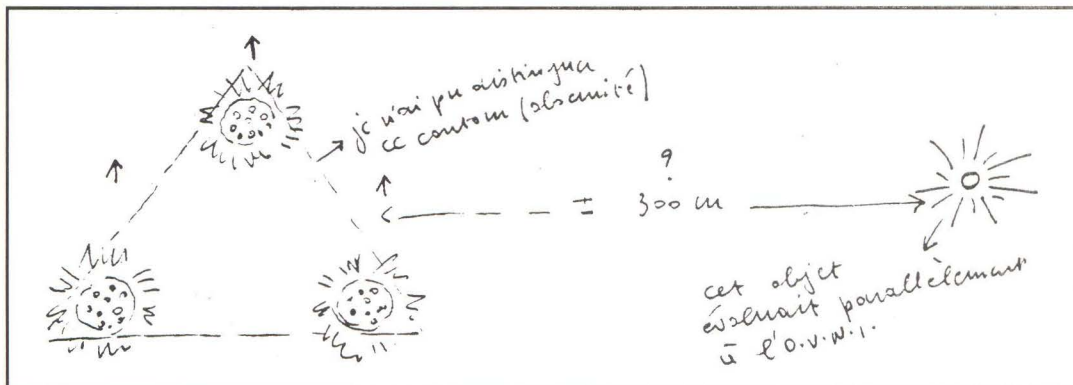 je n'ai pu distinguer
ce contour (obscurité)
?
± 300 m
cet objet
évoluait parallèlement
à l'O.V.N.I.